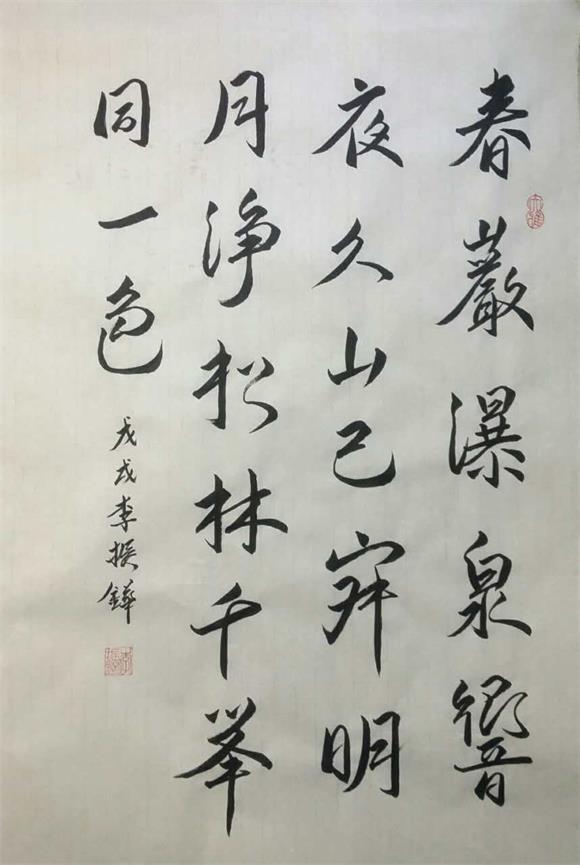 春巖瀑泉響
夜久山已寂明
月淨松林千峯
同一色
戊戌李鏵